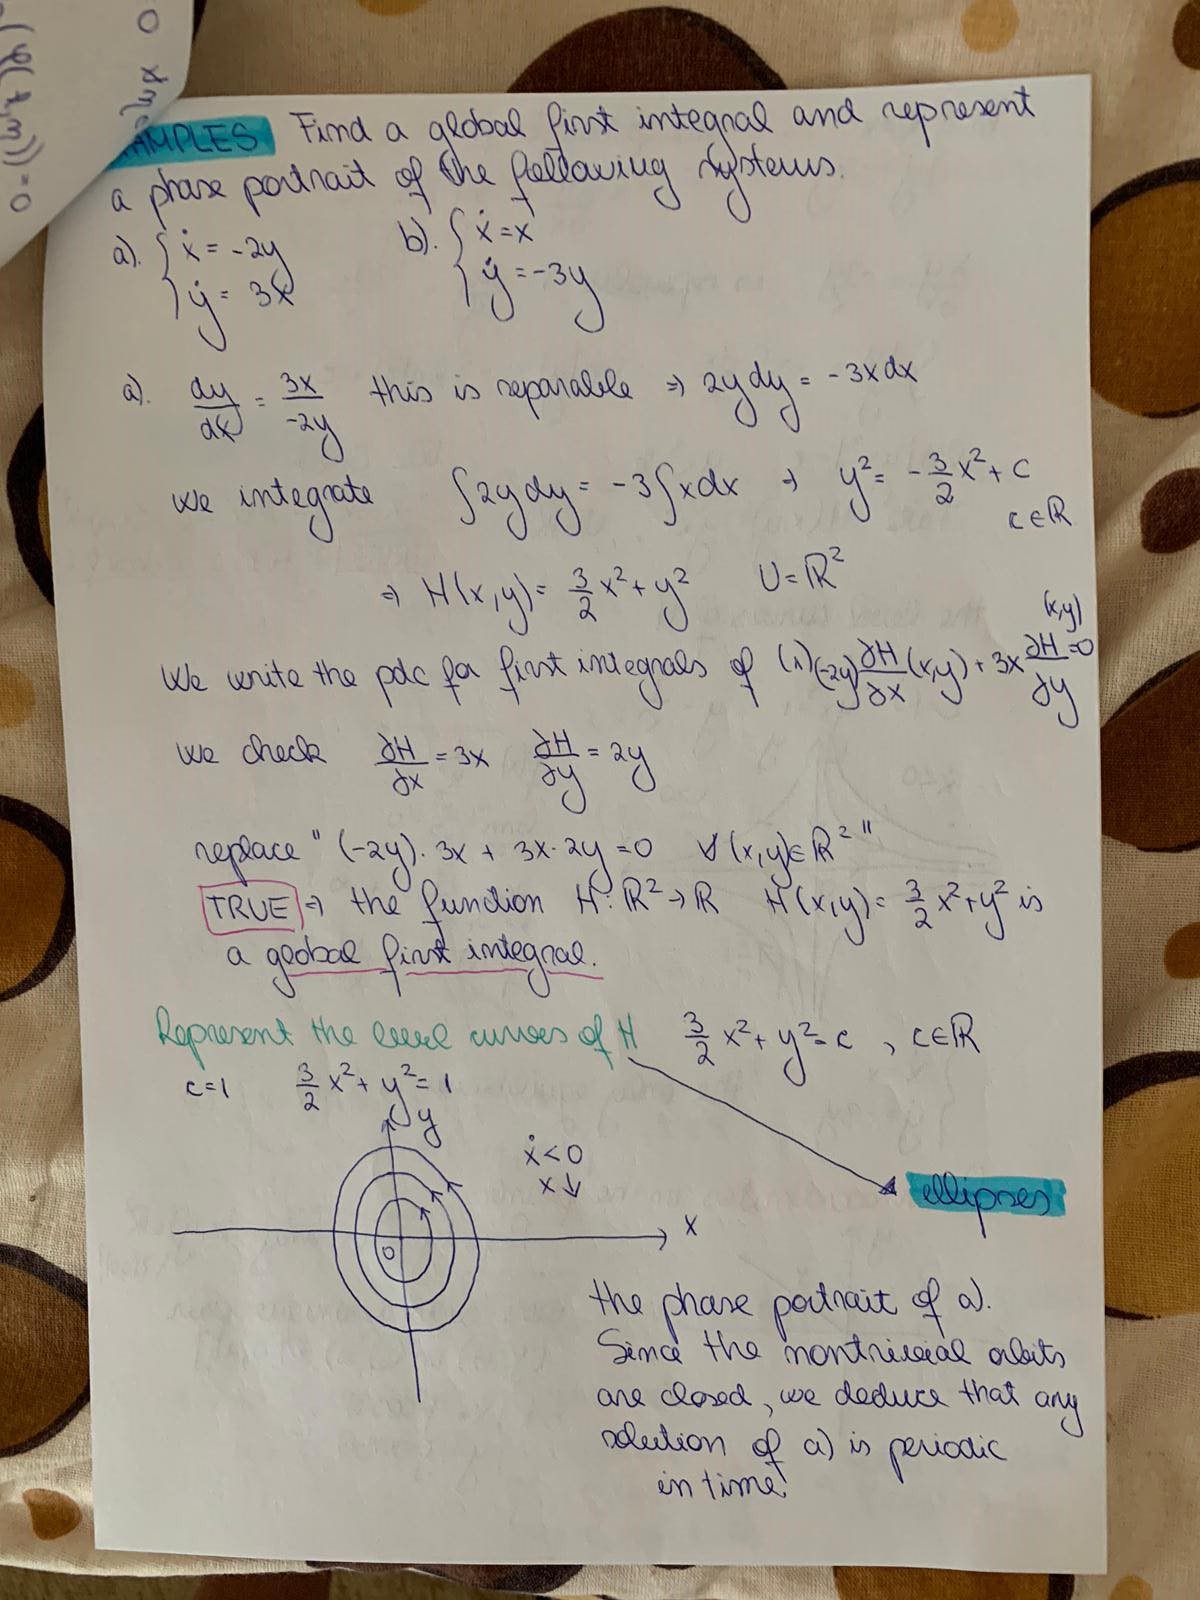 AMPLES Find a global first integral and represent
a phase portrait of the following systems.
a). { ẋ = -2y b). { ẋ = x
ẏ = 3x ẏ = -3y
a). dy/dx = 3x/-2y this is separable ⇒ 2y dy = -3x dx
we integrate ∫2y dy = -3∫x dx ⇒ y² = -3/2 x² + c
c∈ℝ
⇒ H(x,y) = 3/2 x² + y² U = ℝ²
We write the pde for first integrals of (1) (-2y) ∂H/∂x (x,y) + 3x ∂H/∂y (x,y) = 0
we check ∂H/∂x = 3x ∂H/∂y = 2y
replace " (-2y) · 3x + 3x · 2y = 0 ∀ (x,y)∈ℝ² "
TRUE ⇒ the function H: ℝ² → ℝ H(x,y) = 3/2 x² + y² is
a global first integral.
Represent the level curves of H 3/2 x² + y² = c , c∈ℝ
c=1 3/2 x² + y² = 1
y
ẋ < 0
x ↓
ellipses
x
0
the phase portrait of a).
Since the nontrivial orbits
are closed, we deduce that any
solution of a) is periodic
in time.
0
(φ(t,η)) = 0